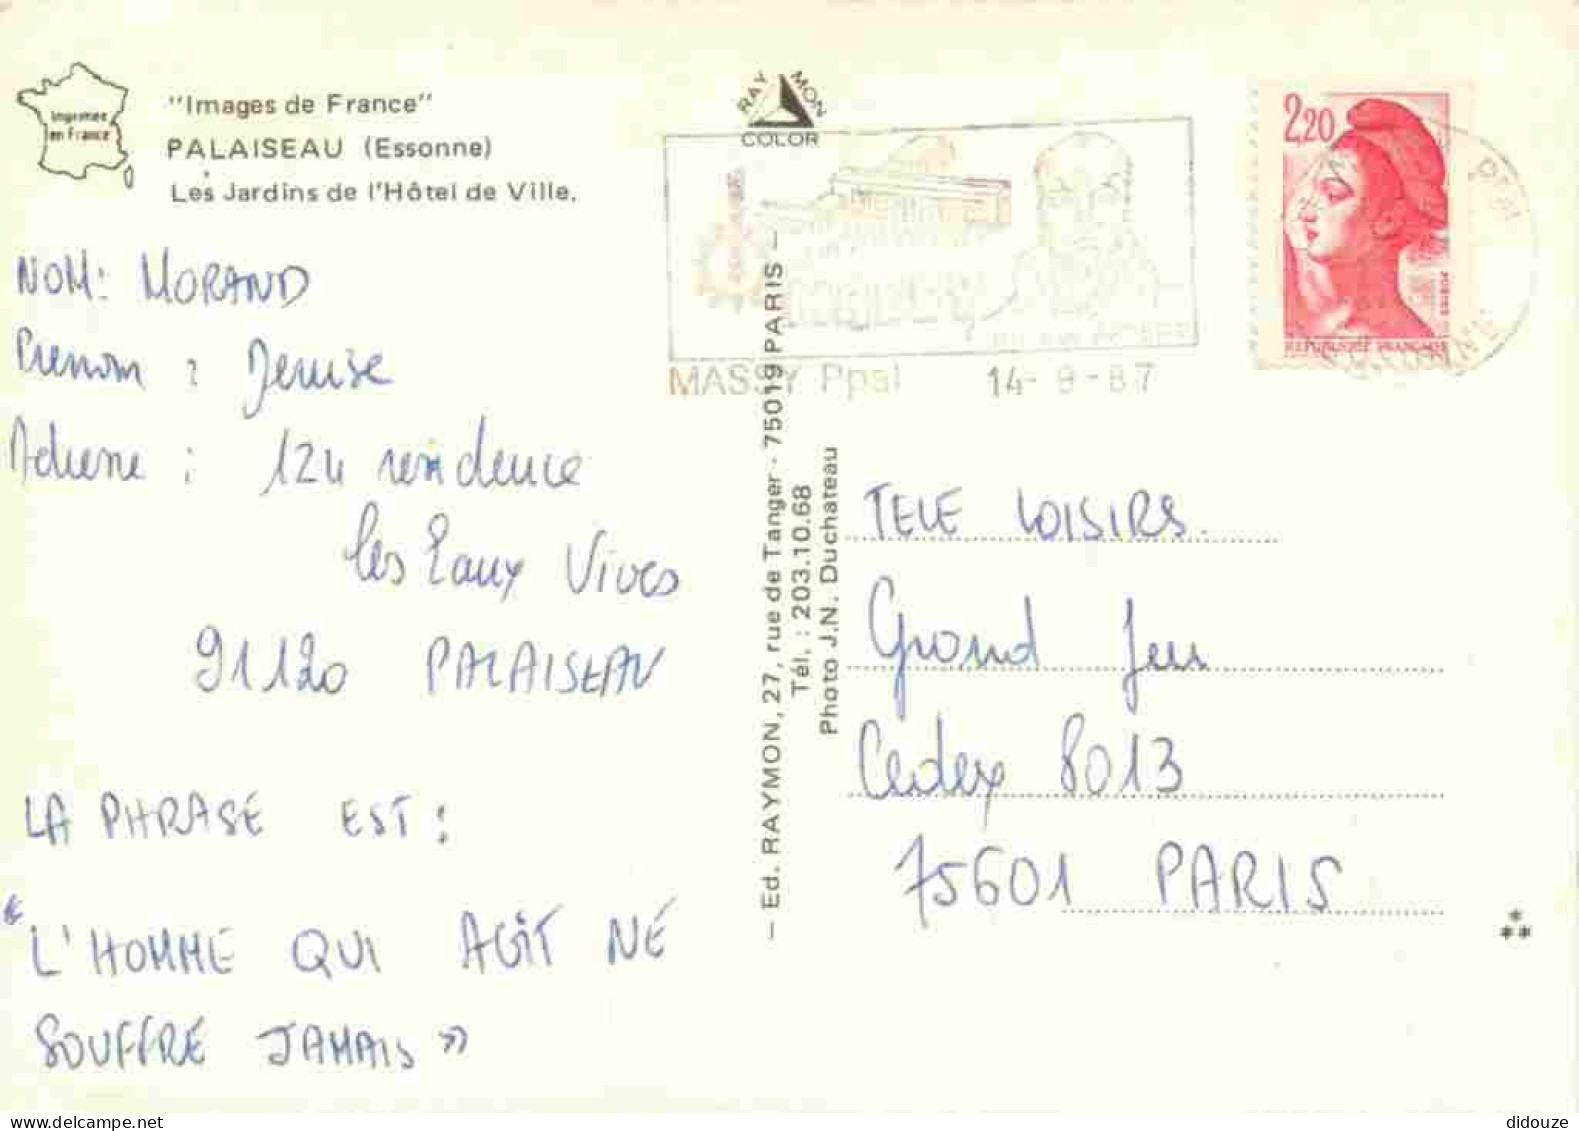 Imprimée
en France
"Images de France"
PALAISEAU (Essonne)
Les Jardins de l'Hôtel de Ville.
RAYMON
COLOR
2,20
POSTES
RÉPUBLIQUE FRANÇAISE
MASSY Ppal 14-9-87
NOM: MORAND
Prenom : Denise
Adresse : 124 residence
les Eaux Vives
91120 PALAISEAU
LA PHRASE EST :
« L'HOMME QUI AGIT NE
SOUFFRE JAMAIS »
— Ed. RAYMON, 27, rue de Tanger - 75019 PARIS —
Tél. : 203.10.68
Photo J.N. Duchateau
TELE LOISIRS.
Grand Jeu
Cedex 8013
75601 PARIS
didouze